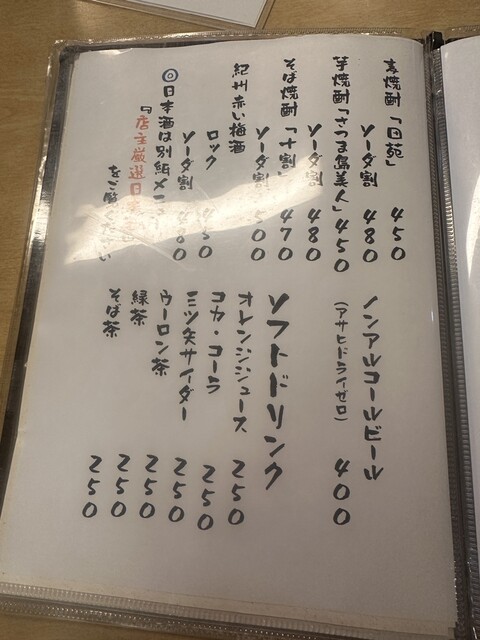 麦焼酎「田苑」 450
ソーダ割 480
芋焼酎「さつま島美人」 450
ソーダ割 480
そば焼酎「十割」 470
ソーダ割 500
紀州赤い梅酒
ロック 450
ソーダ割 480
◎日本酒は別紙メニュー
『店主厳選日本酒』
をご覧ください
ノンアルコールビール
(アサヒドライゼロ) 400
ソフトドリンク
オレンジジュース 250
コカ・コーラ 250
三ツ矢サイダー 250
ウーロン茶 250
緑茶 250
そば茶 250